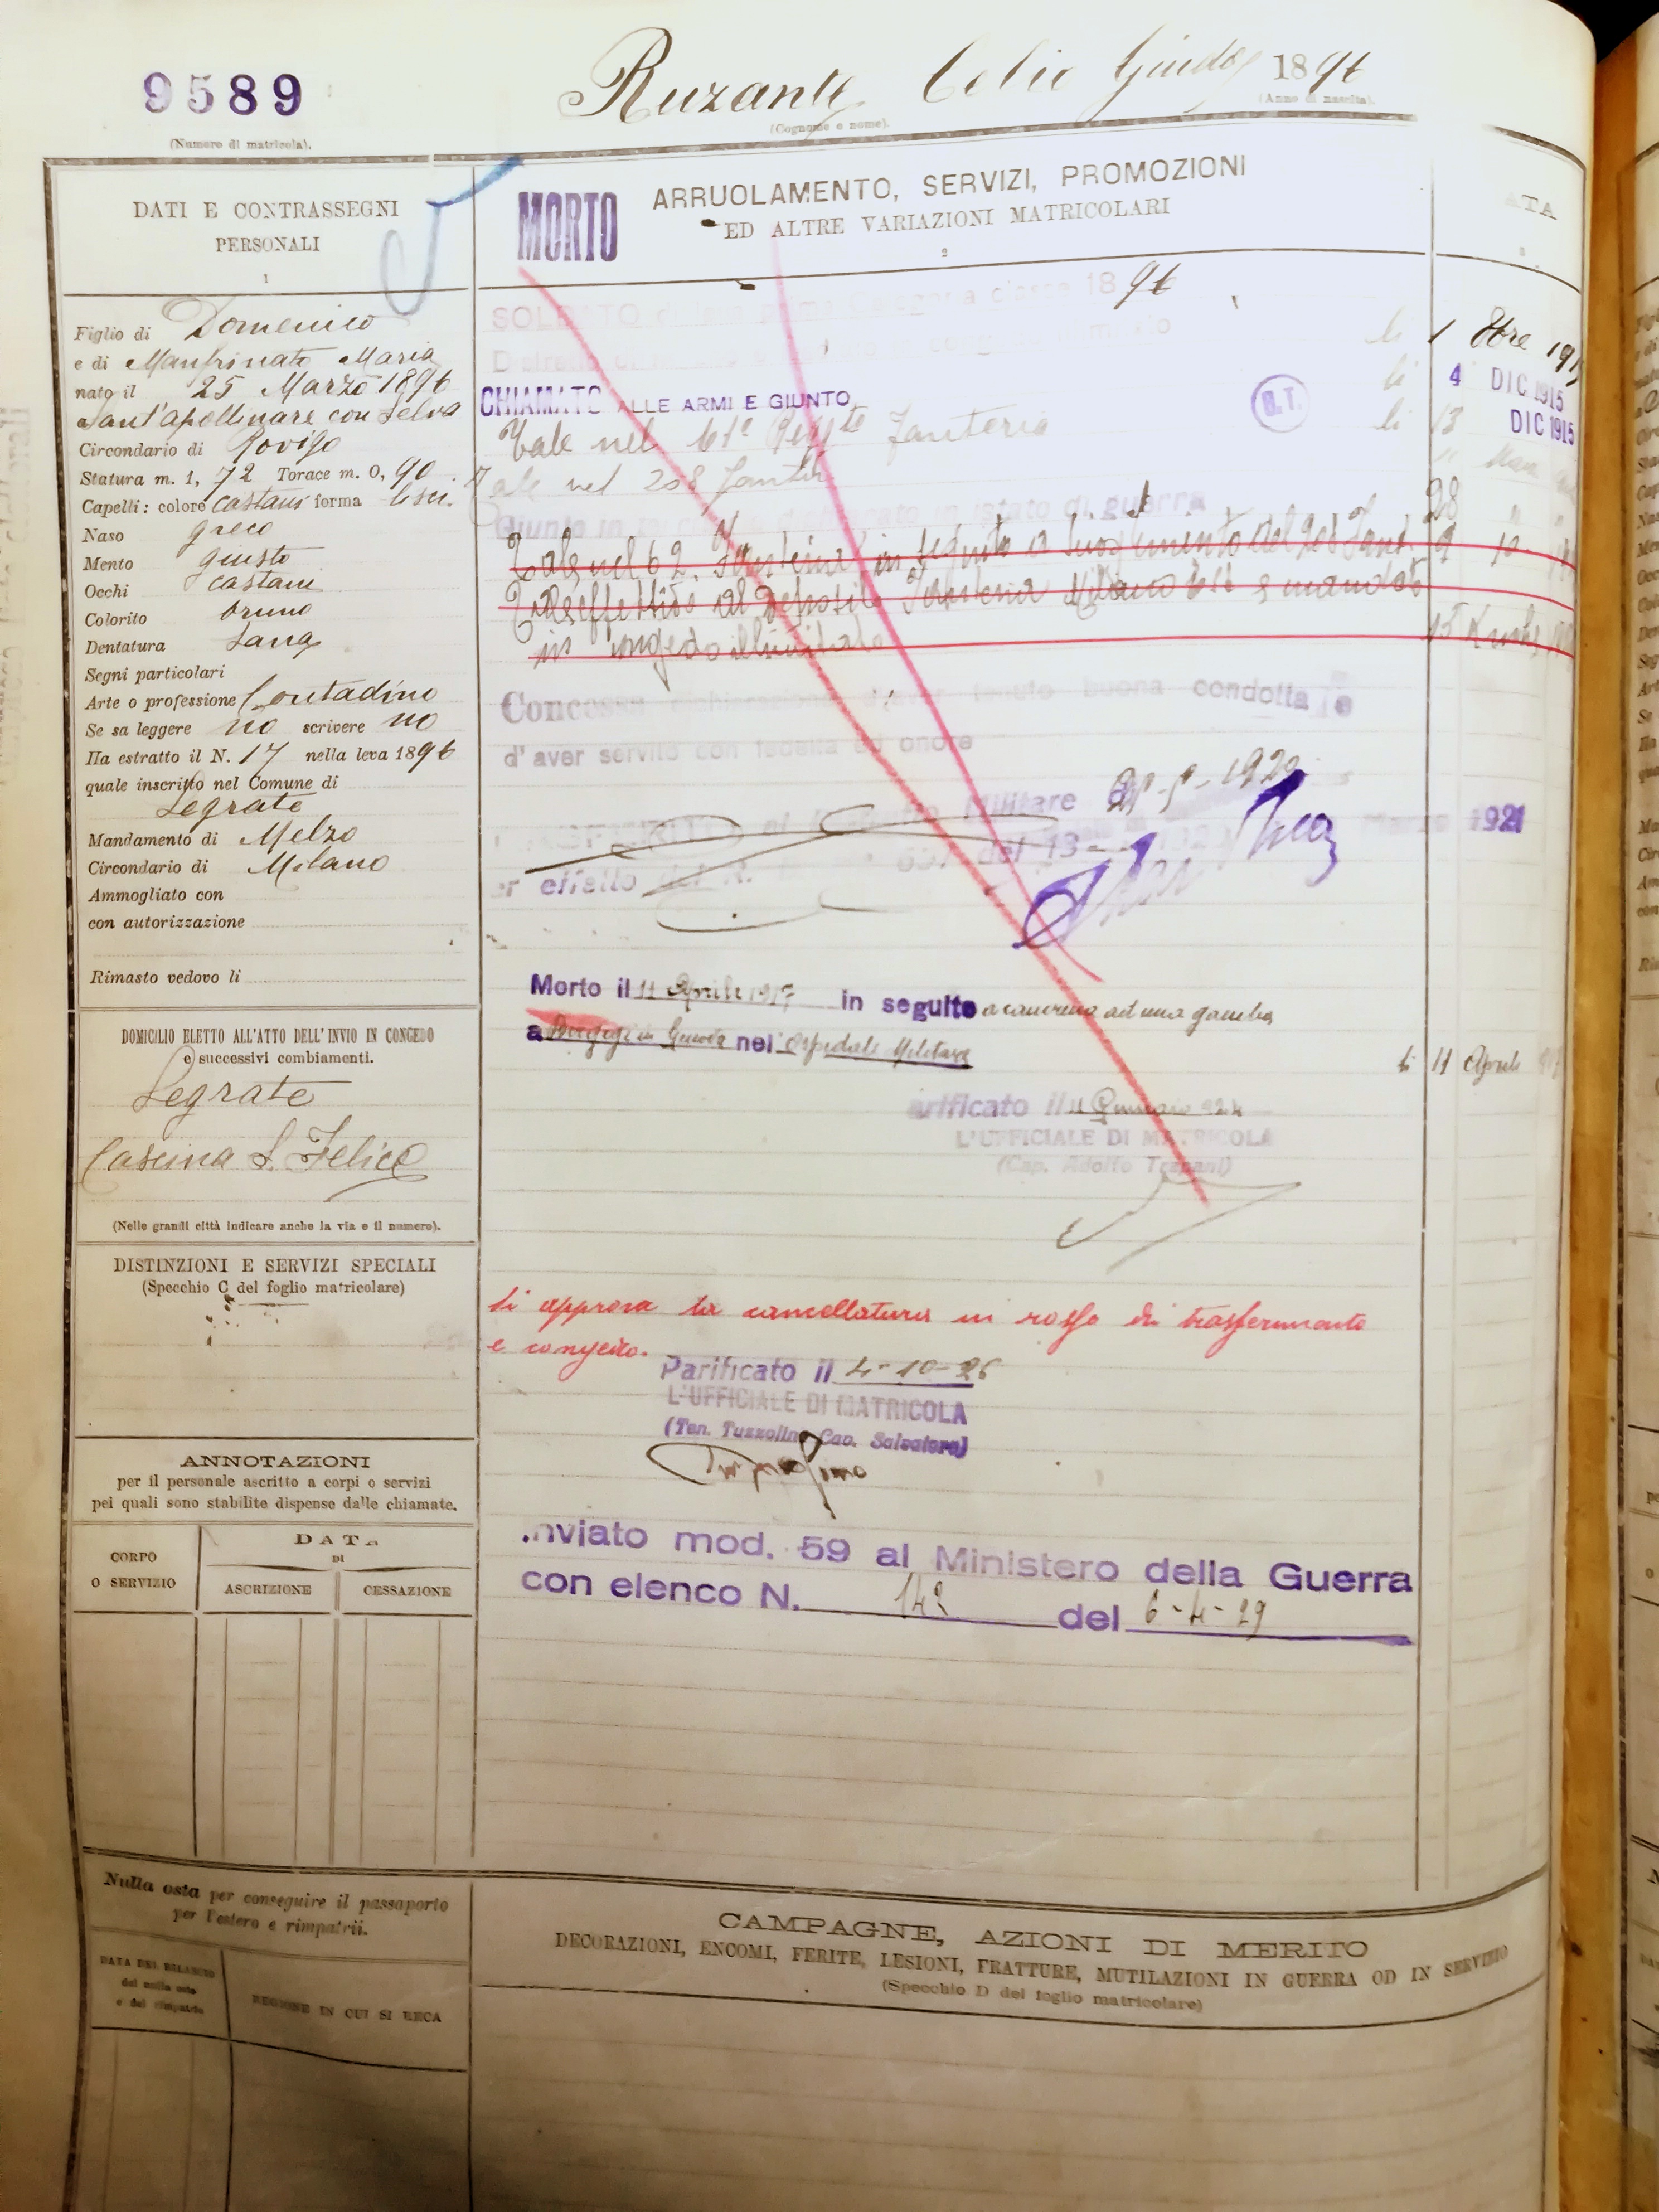 9589
(Numero di matricola).
Ruzante Celio Guido 1896
(Cognome e nome). (Anno di nascita).
DATI E CONTRASSEGNI
PERSONALI
1
Figlio di Domenico
e di Manfrinato Maria
nato il 25 Marzo 1896
a Sant'apollinare con Selva
Circondario di Rovigo
Statura m. 1, 72 Torace m. 0, 90
Capelli: colore castani forma lisci.
Naso greco
Mento giusto
Occhi castani
Colorito bruno
Dentatura sana
Segni particolari
Arte o professione Contadino
Se sa leggere no scrivere no
Ha estratto il N. 17 nella leva 1896
quale inscritto nel Comune di
Segrate
Mandamento di Melzo
Circondario di Milano
Ammogliato con
con autorizzazione
Rimasto vedovo li
DOMICILIO ELETTO ALL'ATTO DELL'INVIO IN CONGEDO
e successivi combiamenti.
Segrate
Cascina S. Felice
(Nelle grandi città indicare anche la via e il numero).
DISTINZIONI E SERVIZI SPECIALI
(Specchio C del foglio matricolare)
ANNOTAZIONI
per il personale ascritto a corpi o servizi
pei quali sono stabilite dispense dalle chiamate.
CORPO
O SERVIZIO
DATA
DI
ASCRIZIONE CESSAZIONE
Nulla osta per conseguire il passaporto
per l'estero e rimpatrii.
DATA DEL RILASCIO
del nulla osta
e del rimpatrio
REGIONE IN CUI SI RECA
MORTO
ARRUOLAMENTO, SERVIZI, PROMOZIONI
ED ALTRE VARIAZIONI MATRICOLARI
2
SOLDATO di leva prima Categoria classe 1896
li 1 Xbre
CHIAMATO ALLE ARMI E GIUNTO B.T. li 4 DIC 1915
Tale nel 61° Regg.to Fanteria li 13 DIC 1915
Tale nel 208 Fantria
Giunto in territorio dichiarato in istato di guerra 28
Tale nel 62 Fanteria in seguito a scioglimento del 208 Fant. 9
Tale effettivo al Deposito Fanteria Milano e mandato
in congedo illimitato 15
Concessa dichiarazione d'aver tenuto buona condotta e
d'aver servito con fedeltà ed onore
Militare
1921
effetto del R.
del 13
Morto il 11 Aprile 1917 in seguito a cancrena ad una gamba
a in nel Ospedale Militare
li 11 Aprile
arificato il 11 Gennaio 924
L'UFFICIALE DI MATRICOLA
(Cap. Adolfo Trapani)
Si approva la cancellatura in rosso di trasferimento
e congedo.
Parificato il 4-10-26
L'UFFICIALE DI MATRICOLA
(Ten. Tuzzolino Cav. Salvatore)
Tuzzolino
nviato mod. 59 al Ministero della Guerra
con elenco N. 142 del 6-4-29
CAMPAGNE, AZIONI DI MERITO
DECORAZIONI, ENCOMI, FERITE, LESIONI, FRATTURE, MUTILAZIONI IN GUERRA OD IN SERVIZIO
(Specchio D del foglio matricolare)